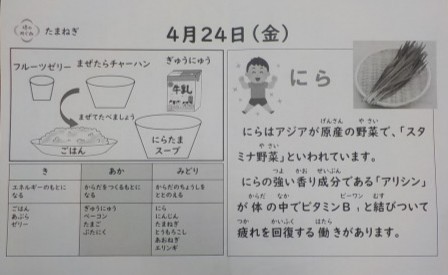 たまねぎ
4月24日(金)
フルーツゼリー
まぜたらチャーハン
ぎゅうにゅう
牛乳
まぜてたべましょう
ごはん
にらたま
スープ
き
あか
みどり
エネルギーのもとに
なる
からだをつくるもとに
なる
からだのちょうしを
ととのえる
ごはん
あぶら
ゼリー
ぎゅうにゅう
ベーコン
たまご
ぶたにく
にら
にんじん
たまねぎ
とうもろこし
あおねぎ
エリンギ
にら
げんさん やさい
にらはアジアが原産の野菜で、「スタ
やさい
ミナ野菜」といわれています。
つよ かお せいぶん
にらの強い香り成分である「アリシン」
からだ なか ビーワン むす
が体の中でビタミンB₁と結びついて
つか かいふく はたら
疲れを回復する働きがあります。